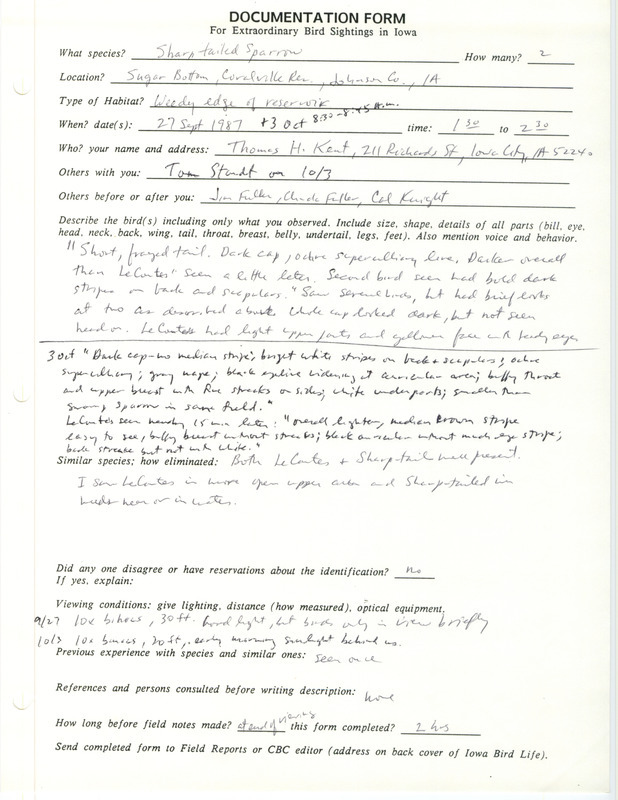 DOCUMENTATION FORM
For Extraordinary Bird Sightings in Iowa
What species? Sharp-tailed Sparrow How many? 2
Location? Sugar Bottom, Coralville Res., Johnson Co., IA
Type of Habitat? Weedy edge of reservoir
When? date(s): 27 Sept 1987 + 3 Oct 8:30-8:45 A.m. time: 1 30 to 2 30
Who? your name and address: Thomas H. Kent, 211 Richards St, Iowa City, IA 52240
Others with you: Tom Staudt on 10/3
Others before or after you: Jim Fuller, Chuck Fuller, Cal Knight
Describe the bird(s) including only what you observed. Include size, shape, details of all parts (bill, eye,
head, neck, back, wing, tail, throat, breast, belly, undertail, legs, feet). Also mention voice and behavior.
"Short, frayed tail. Dark cap, ochre superciliary line. Darker overall
than LeConte's seen a little later. Second bird seen had bold dark
stripes on back and scapulars." Saw several birds, but had brief looks
at two as described above. Whole cap looked dark, but not seen
head on. LeConte's had light upper parts and yellower face with beady eyes
3 Oct "Dark cap-no median stripe; bright white stripes on back & scapulars; ochre
superciliary; gray nape; black eyeline widening at auricular area; buffy throat
and upper breast with fine streaks on sides; white underparts; smaller than
Swamp Sparrow in same field."
LeConte's seen nearby 15 min later: "overall lighter, median crown stripe
easy to see, buffy breast without streaks; black auricular without much eye stripe;
back streaks but not with white."
Similar species; how eliminated: Both LeContes & Sharp-tail were present.
I saw LeContes in more open upper area and Sharp-tailed in
weeds near or in water.
Did any one disagree or have reservations about the identification? no
If yes, explain:
Viewing conditions: give lighting, distance (how measured), optical equipment.
9/27 10x binocs, 30 ft. Good light, but birds only in view briefly
10/3 10x binocs, 20 ft, early morning sunlight behind us.
Previous experience with species and similar ones: seen once
References and persons consulted before writing description: none
How long before field notes made? at end of viewing this form completed? 2 hrs
Send completed form to Field Reports or CBC editor (address on back cover of Iowa Bird Life).